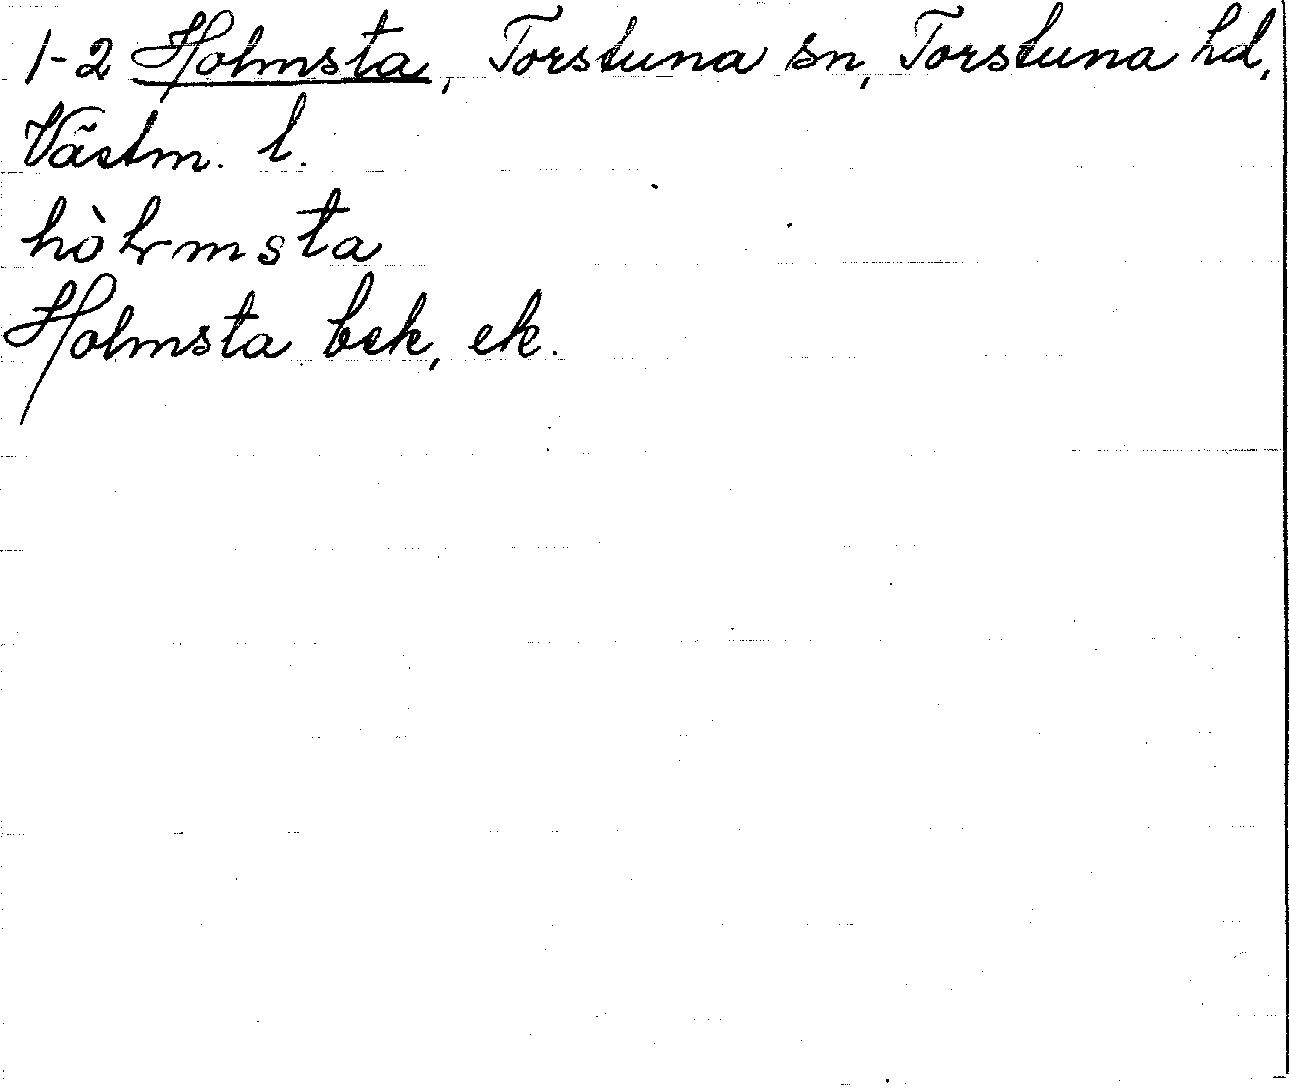 1-2 Holmsta, Torstuna sn, Torstuna hd,
Västm. l.
hòɫmsta
Holmsta bek, ek.